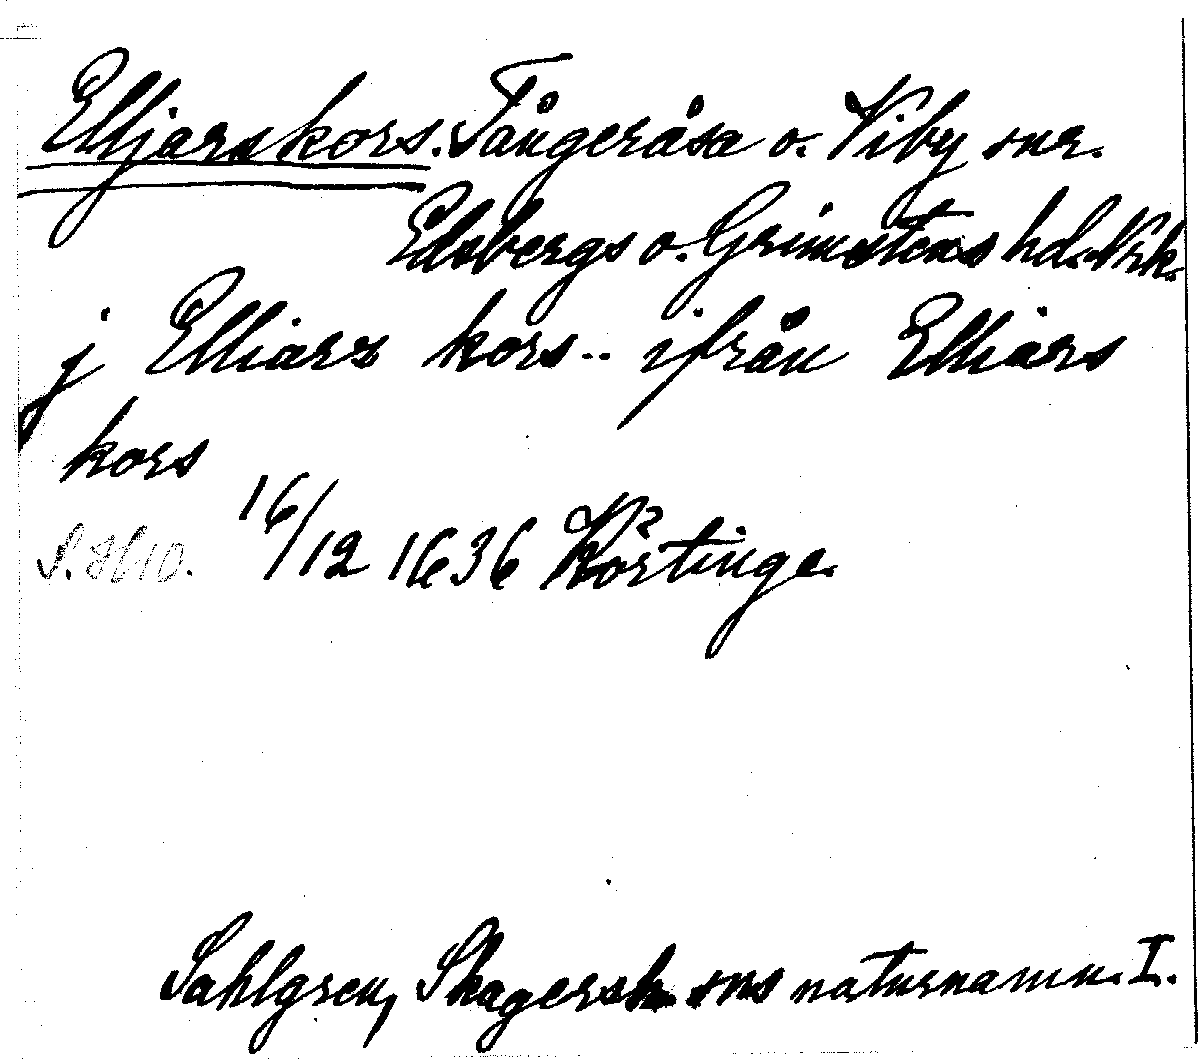 Elljarskors. Tångeråsa o. Viby snr.
Edsbergs o. Grimstens hd. Nrk.
j Elliarz kors.. ifrån Elliars
kors
16/12 1636 Rörtinge.
Sahlgren, Skagersh. sns naturnamn. I.